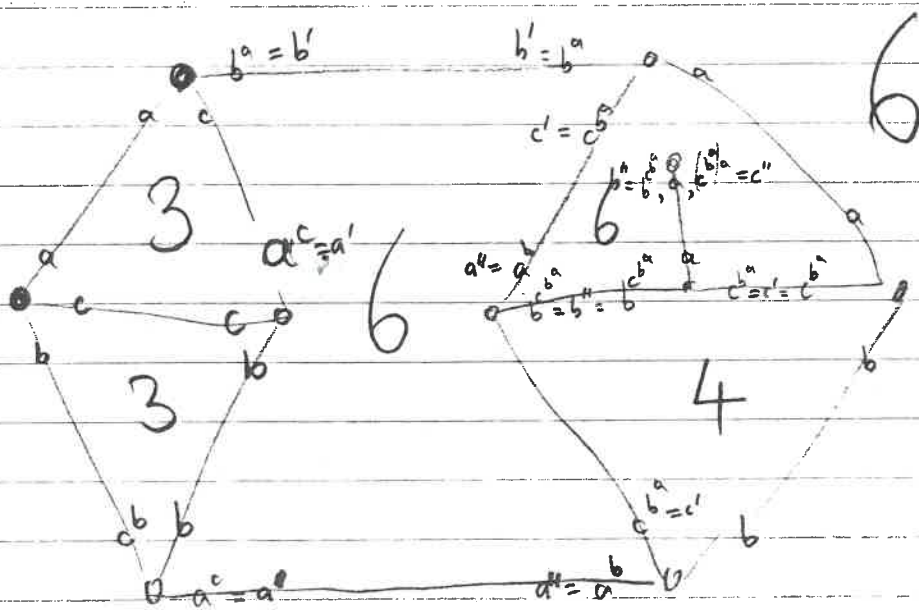 b^a = b'
b' = b^a
a
6
a
c
c' = c^{b^a}
3
b'' = b^{c^{b^a}}, a, = c''
6
a
a
a^c = a'
a'' = a^b
a
c
c
6
b^{c^{b^a}} = b'' = b^{c^{b^a}}
c^{b^a} = c' = c^{b^a}
b
b
b
3
4
c^{b^a} = c'
c^b
b
b
a^c = a''
a'' = a^b